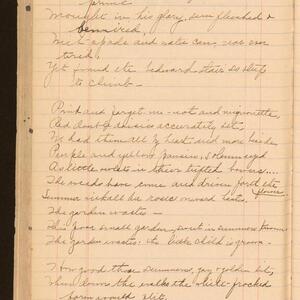 prime
Wrought in his glory, sun flushed &
bemired,
With spade and water can, not ever
tired,
Yet found the bedward stair so steep
to climb —
Pink and forget-me-not and mignonette,
And double daisies accurately set,
We had them all by heart and more beside
People and yellow pansies, solemn eyed
As little in their tufted bowers....
The weeds have come and driven forth the
flowers
Summer all his roses heart.
The garden wastes —
This poor small garden, sweet in summers known
The Garden wastes: the little child is grown.
How good those summers, gay & golden lit,
When down the walks the white-frocked
form would flit.